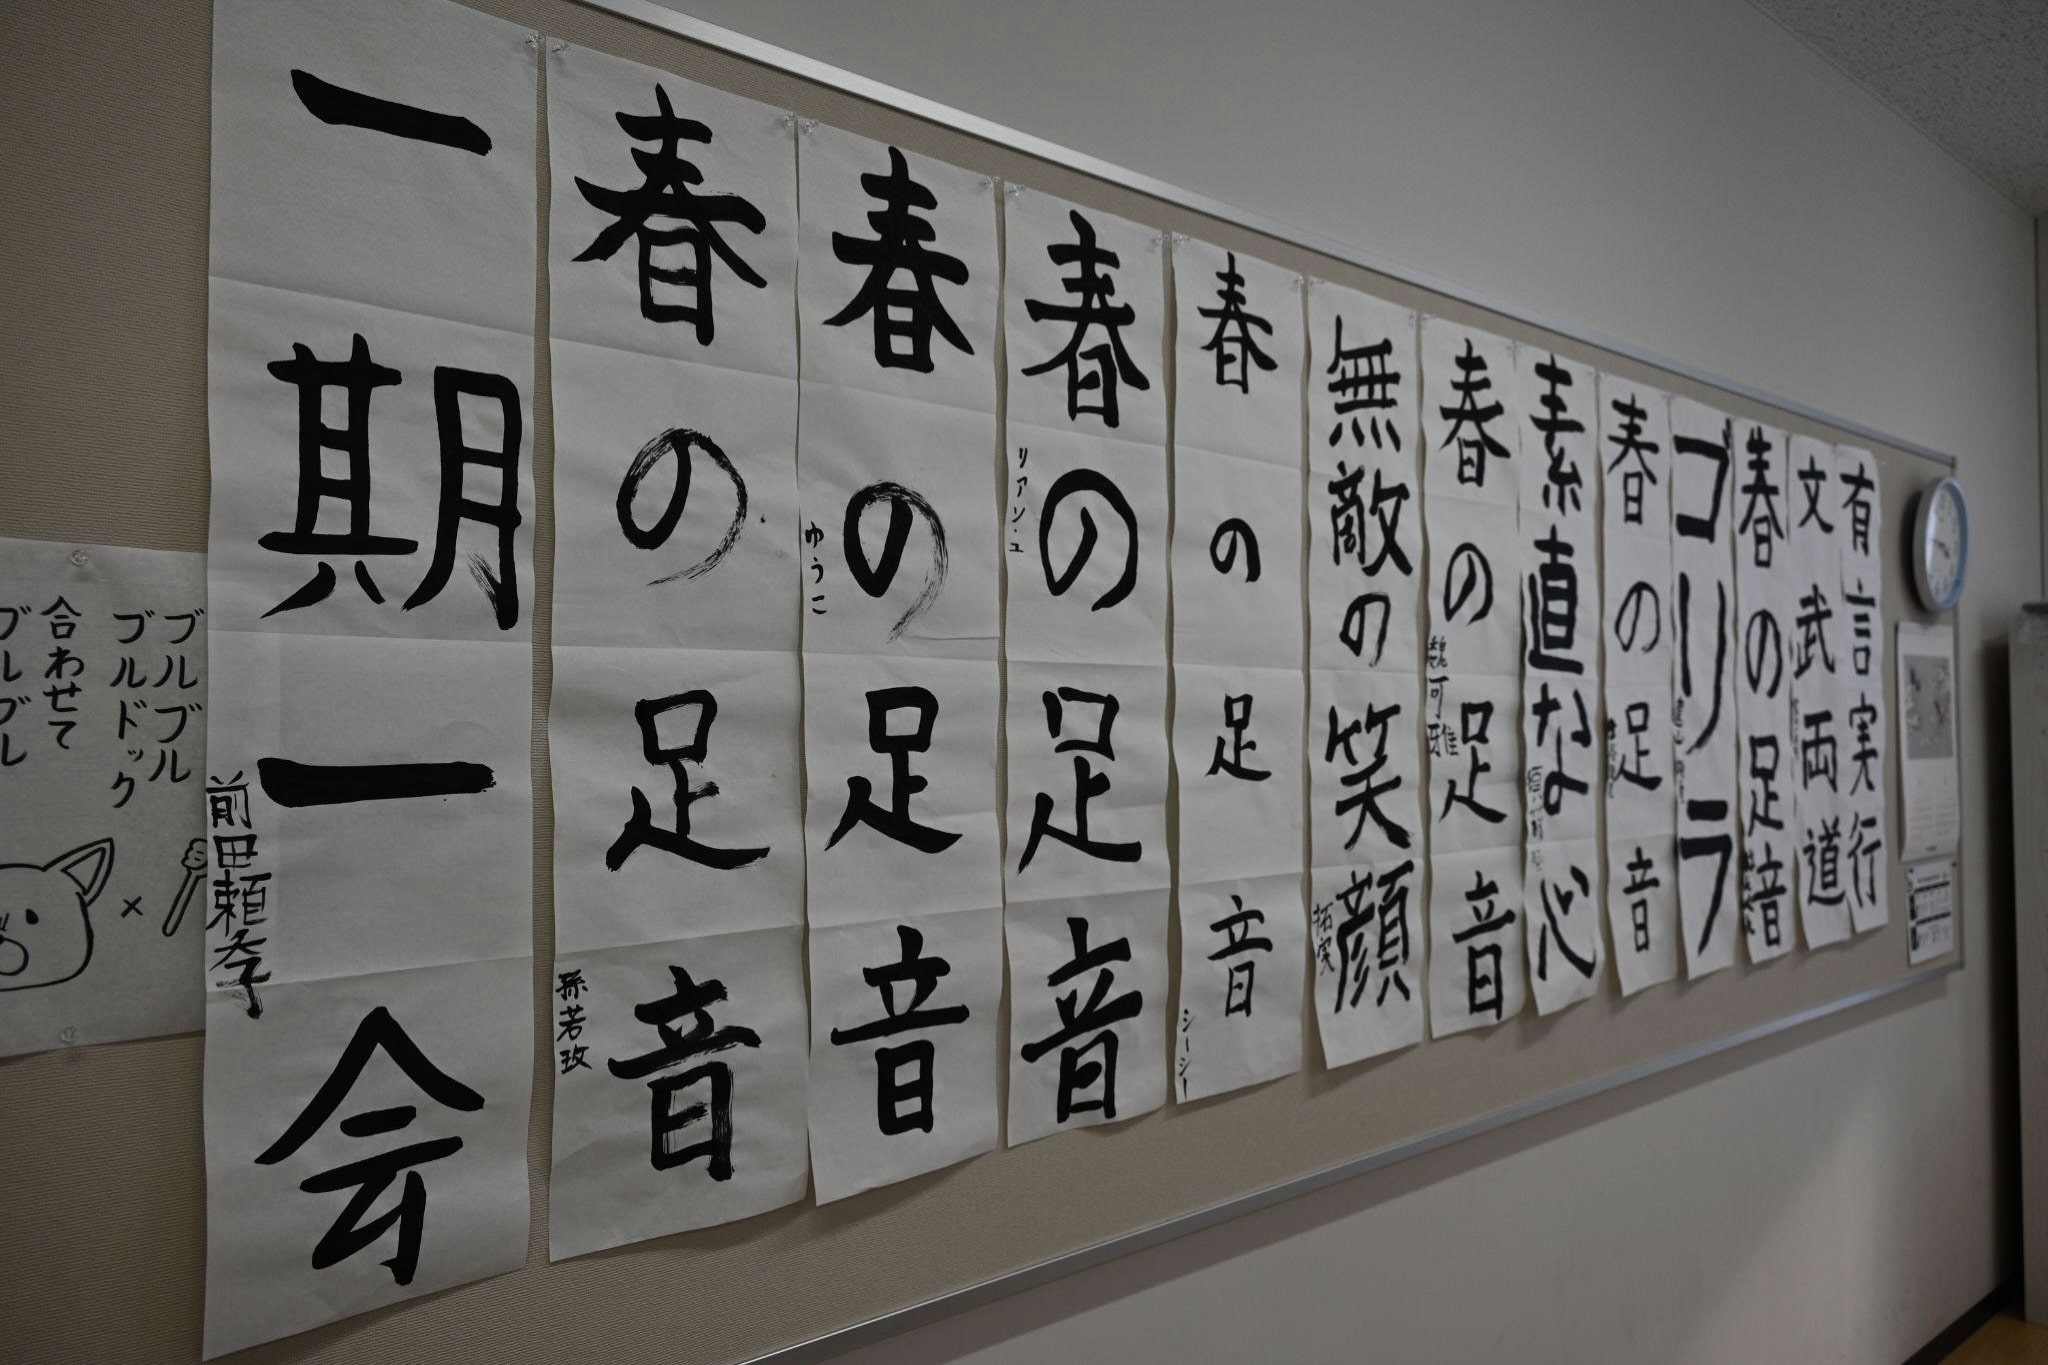 有言実行
文武両道
春の足音
ゴリラ
春の足音
素直な心
春の足音
魏可雅
無敵の笑顔
拓実
春の足音
シーシー
春の足音
リアン・ユ
春の足音
ゆうこ
春の足音
孫若玫
一期一会
前田頼孝
ブルブル
ブルドック
合わせて
ブルブル
×